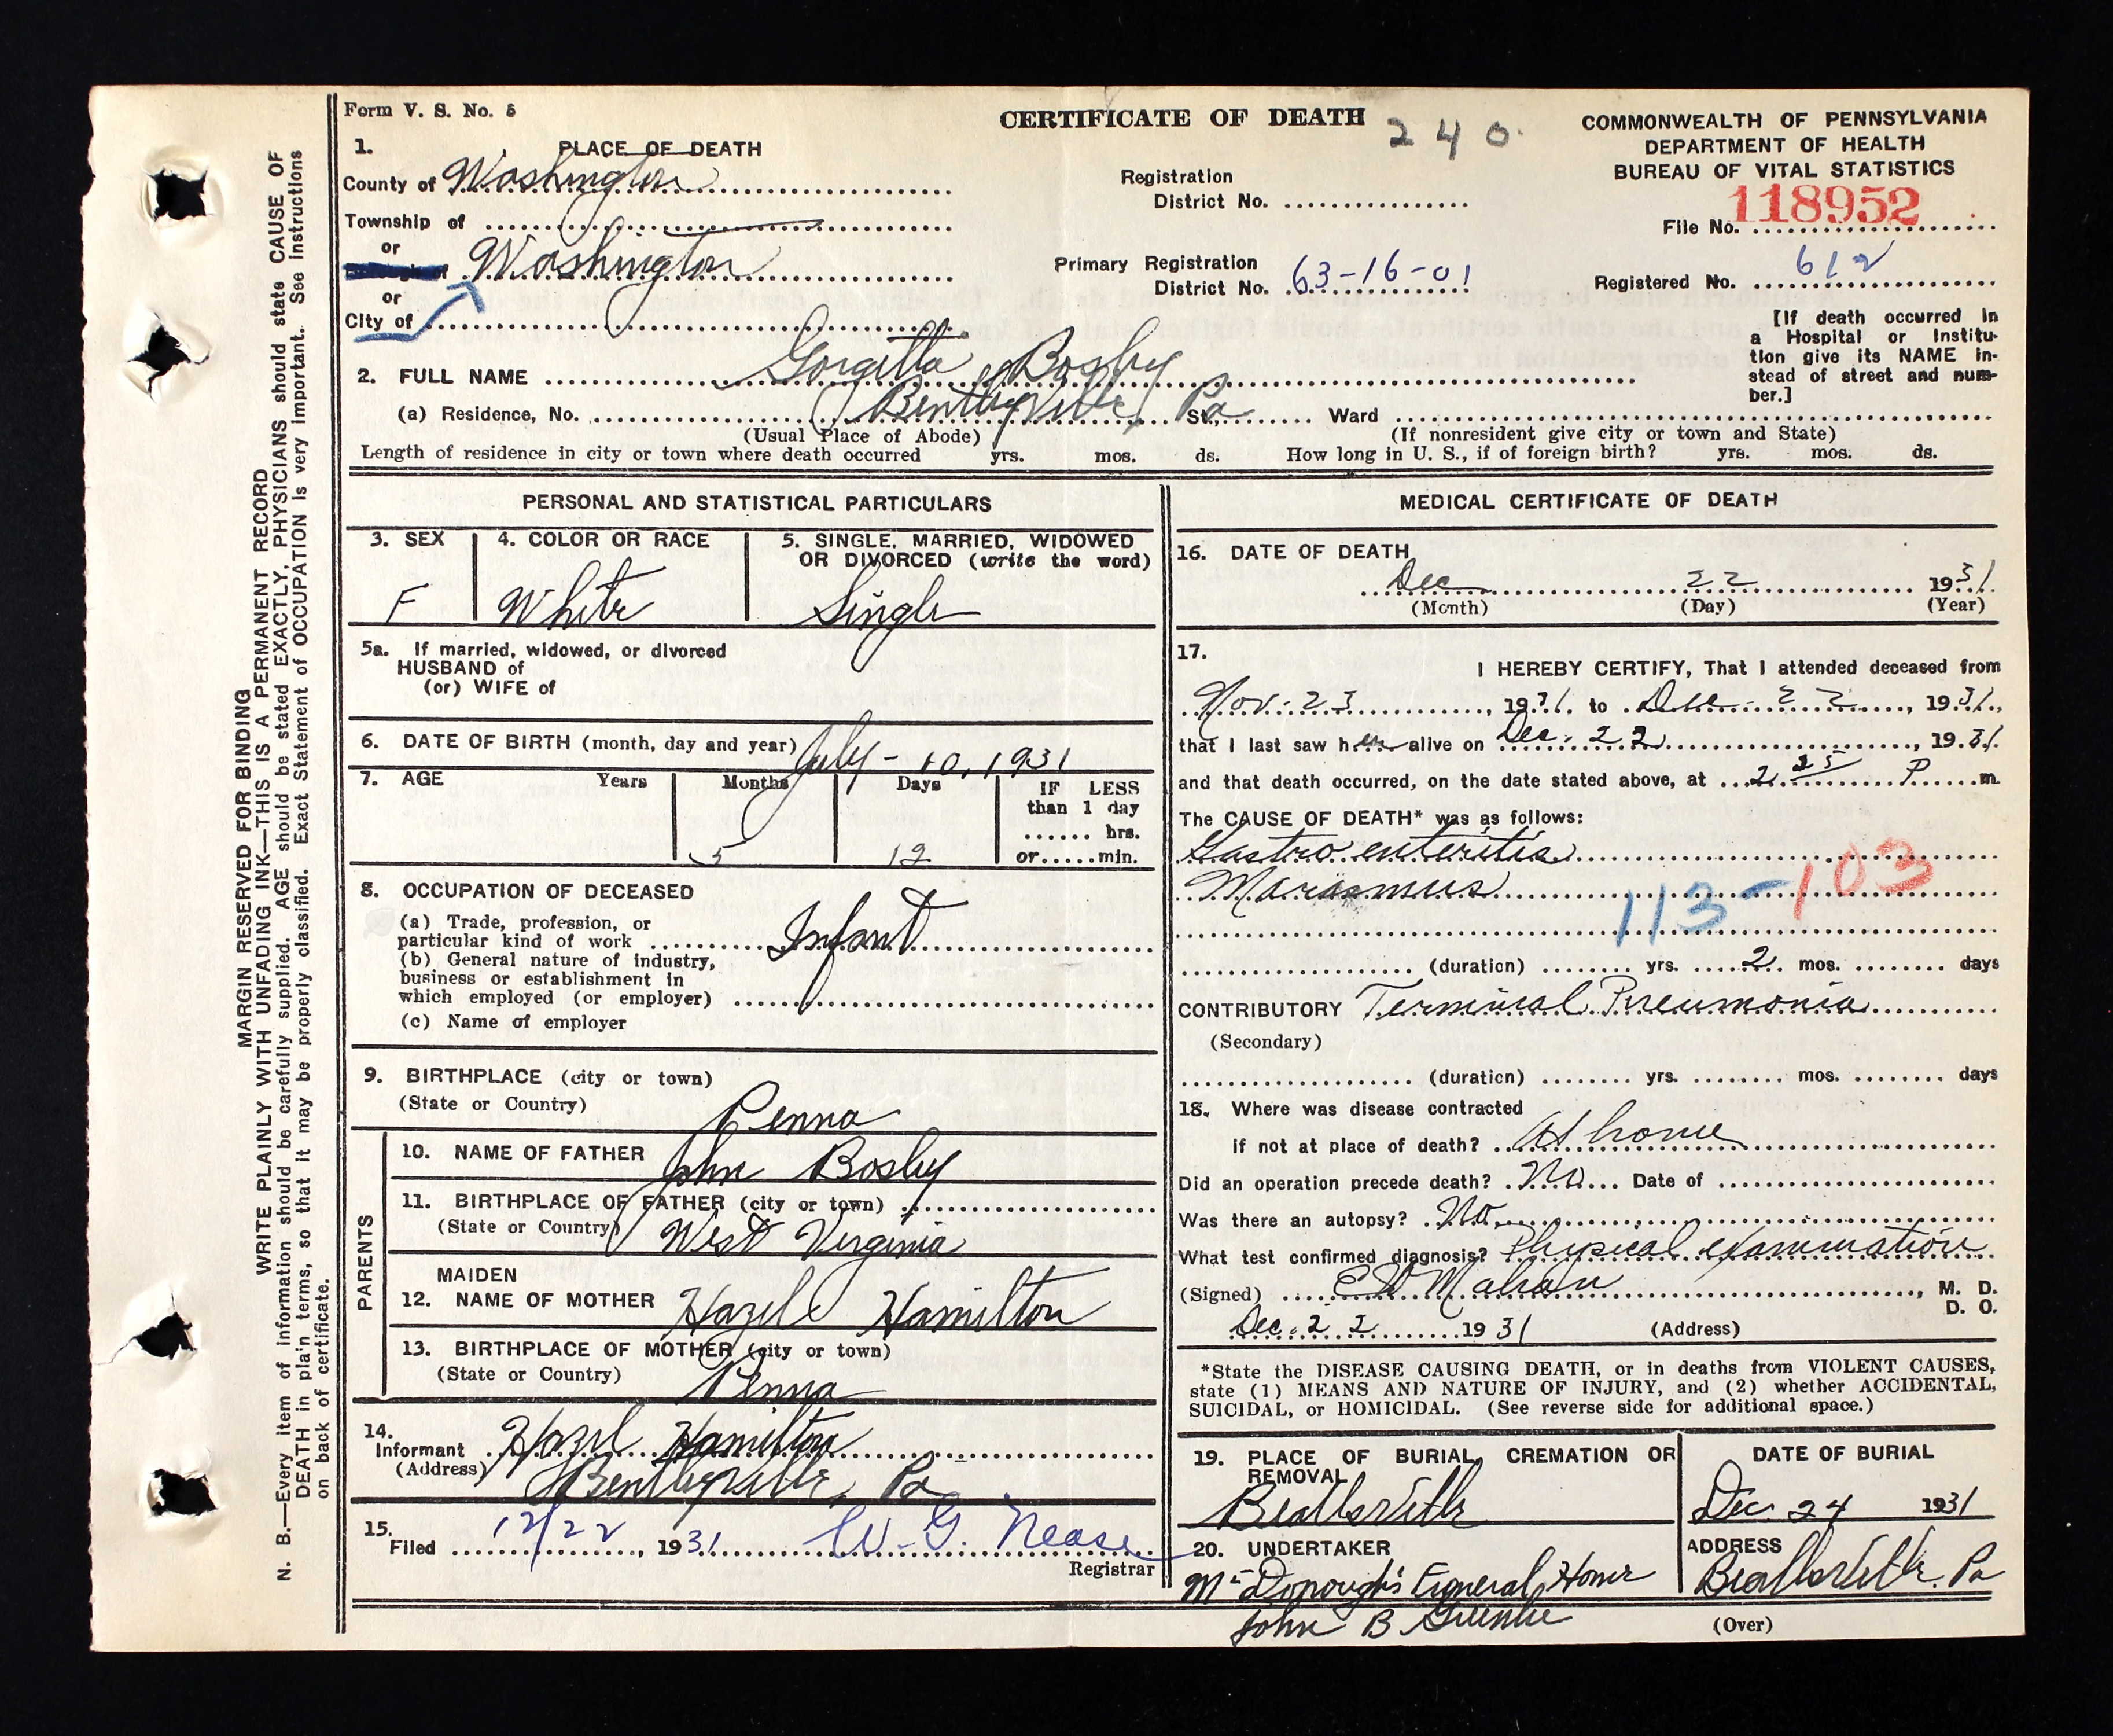 Form V. S. No. 5
CERTIFICATE OF DEATH
240
COMMONWEALTH OF PENNSYLVANIA
DEPARTMENT OF HEALTH
BUREAU OF VITAL STATISTICS
1. PLACE OF DEATH
County of Washington
Township of
or
Washington
or
City of
Registration
District No.
Primary Registration
District No. 63-16-01
118952
File No.
Registered No. 612
[If death occurred in
a Hospital or Institu-
tion give its NAME in-
stead of street and num-
ber.]
2. FULL NAME Gorgitta Bosby
(a) Residence, No. Bentleyville, Pa St., Ward
(Usual Place of Abode)
(If nonresident give city or town and State)
Length of residence in city or town where death occurred yrs. mos. ds. How long in U. S., if of foreign birth? yrs. mos. ds.
PERSONAL AND STATISTICAL PARTICULARS
3. SEX
F
4. COLOR OR RACE
White
5. SINGLE, MARRIED, WIDOWED
OR DIVORCED (write the word)
Single
5a. If married, widowed, or divorced
HUSBAND of
(or) WIFE of
6. DATE OF BIRTH (month, day and year) July - 10, 1931
7. AGE Years Months Days
IF LESS
than 1 day
hrs.
or min.
5 12
8. OCCUPATION OF DECEASED
(a) Trade, profession, or
particular kind of work Infant
(b) General nature of industry,
business or establishment in
which employed (or employer)
(c) Name of employer
9. BIRTHPLACE (city or town)
(State or Country) Penna
PARENTS
10. NAME OF FATHER John Bosby
11. BIRTHPLACE OF FATHER (city or town)
(State or Country) West Virginia
MAIDEN
12. NAME OF MOTHER Hazel Hamilton
13. BIRTHPLACE OF MOTHER (city or town)
(State or Country) Penna
14.
Informant Hazel Hamilton
(Address) Bentleyville, Pa
15.
Filed 12/22, 1931 W. G. Nease
Registrar
MEDICAL CERTIFICATE OF DEATH
16. DATE OF DEATH
Dec 22 1931
(Month) (Day) (Year)
17.
I HEREBY CERTIFY, That I attended deceased from
Nov. 23, 1931. to Dec. 22, 1931.,
that I last saw her alive on Dec. 22, 1931.
and that death occurred, on the date stated above, at 2 25 P. m.
The CAUSE OF DEATH* was as follows:
Gastro enteritis
Marasmus
113-103
(duration) yrs. 2 mos. days
CONTRIBUTORY Terminal Pneumonia
(Secondary)
(duration) yrs. mos. days
18. Where was disease contracted
if not at place of death? At home
Did an operation precede death? No Date of
Was there an autopsy? No
What test confirmed diagnosis? Physical examination
(Signed) E W Mahan, M. D.
D. O.
Dec. 22 1931 (Address)
*State the DISEASE CAUSING DEATH, or in deaths from VIOLENT CAUSES,
state (1) MEANS AND NATURE OF INJURY, and (2) whether ACCIDENTAL,
SUICIDAL, or HOMICIDAL. (See reverse side for additional space.)
19. PLACE OF BURIAL, CREMATION OR
REMOVAL
Beallsville
DATE OF BURIAL
Dec. 24 1931
20. UNDERTAKER
McDonough's Funeral Home
John B. Greenlee
ADDRESS
Beallsville. Pa
(Over)
MARGIN RESERVED FOR BINDING
WRITE PLAINLY WITH UNFADING INK—THIS IS A PERMANENT RECORD
N. B.—Every item of information should be carefully supplied. AGE should be stated EXACTLY. PHYSICIANS should state CAUSE OF
DEATH in plain terms, so that it may be properly classified. Exact Statement of OCCUPATION is very important. See instructions
on back of certificate.